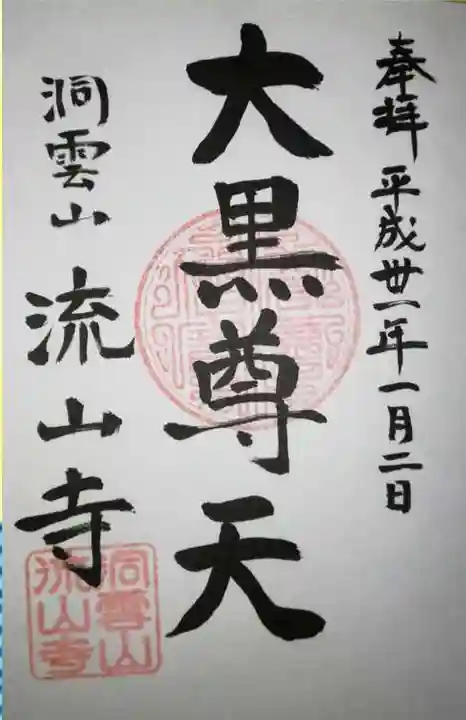 奉拝 平成卅一年一月二日
大黒尊天
洞雲山 流山寺
洞雲山
流山寺